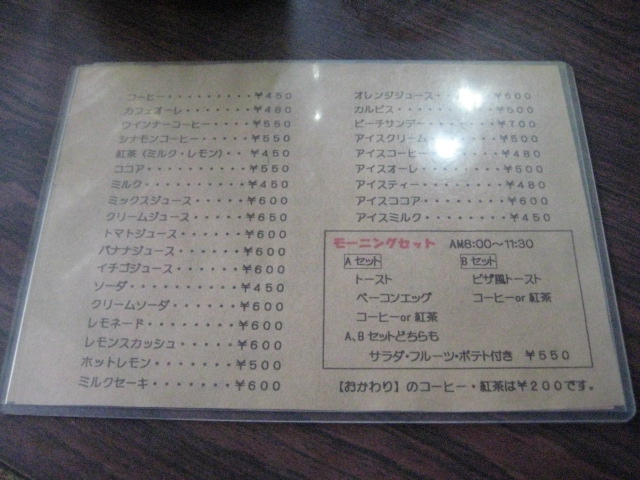 コーヒー・・・・・・・・・￥450
カフェオーレ・・・・・・・￥480
ウインナーコーヒー・・・・￥550
シナモンコーヒー・・・・・￥550
紅茶（ミルク・レモン）・・￥450
ココア・・・・・・・・・・￥550
ミルク・・・・・・・・・・￥450
ミックスジュース・・・・・￥600
クリームジュース・・・・・￥650
トマトジュース・・・・・・￥600
バナナジュース・・・・・・￥600
イチゴジュース・・・・・・￥600
ソーダ・・・・・・・・・・￥450
クリームソーダ・・・・・・￥600
レモネード・・・・・・・・￥600
レモンスカッシュ・・・・・￥600
ホットレモン・・・・・・・￥500
ミルクセーキ・・・・・・・￥600
オレンジジュース・・・・・￥600
カルピス・・・・・・・・・￥500
ピーチサンデー・・・・・・￥700
アイスクリーム・・・・・・￥500
アイスコーヒー・・・・・・￥480
アイスオーレ・・・・・・・￥500
アイスティー・・・・・・・￥480
アイスココア・・・・・・・￥600
アイスミルク・・・・・・・￥450
モーニングセット AM8:00～11:30
Aセット Bセット
トースト ピザ風トースト
ベーコンエッグ コーヒーor 紅茶
コーヒーor 紅茶
A、Bセットどちらも
サラダ・フルーツ・ポテト付き ￥550
【おかわり】のコーヒー・紅茶は￥200です。